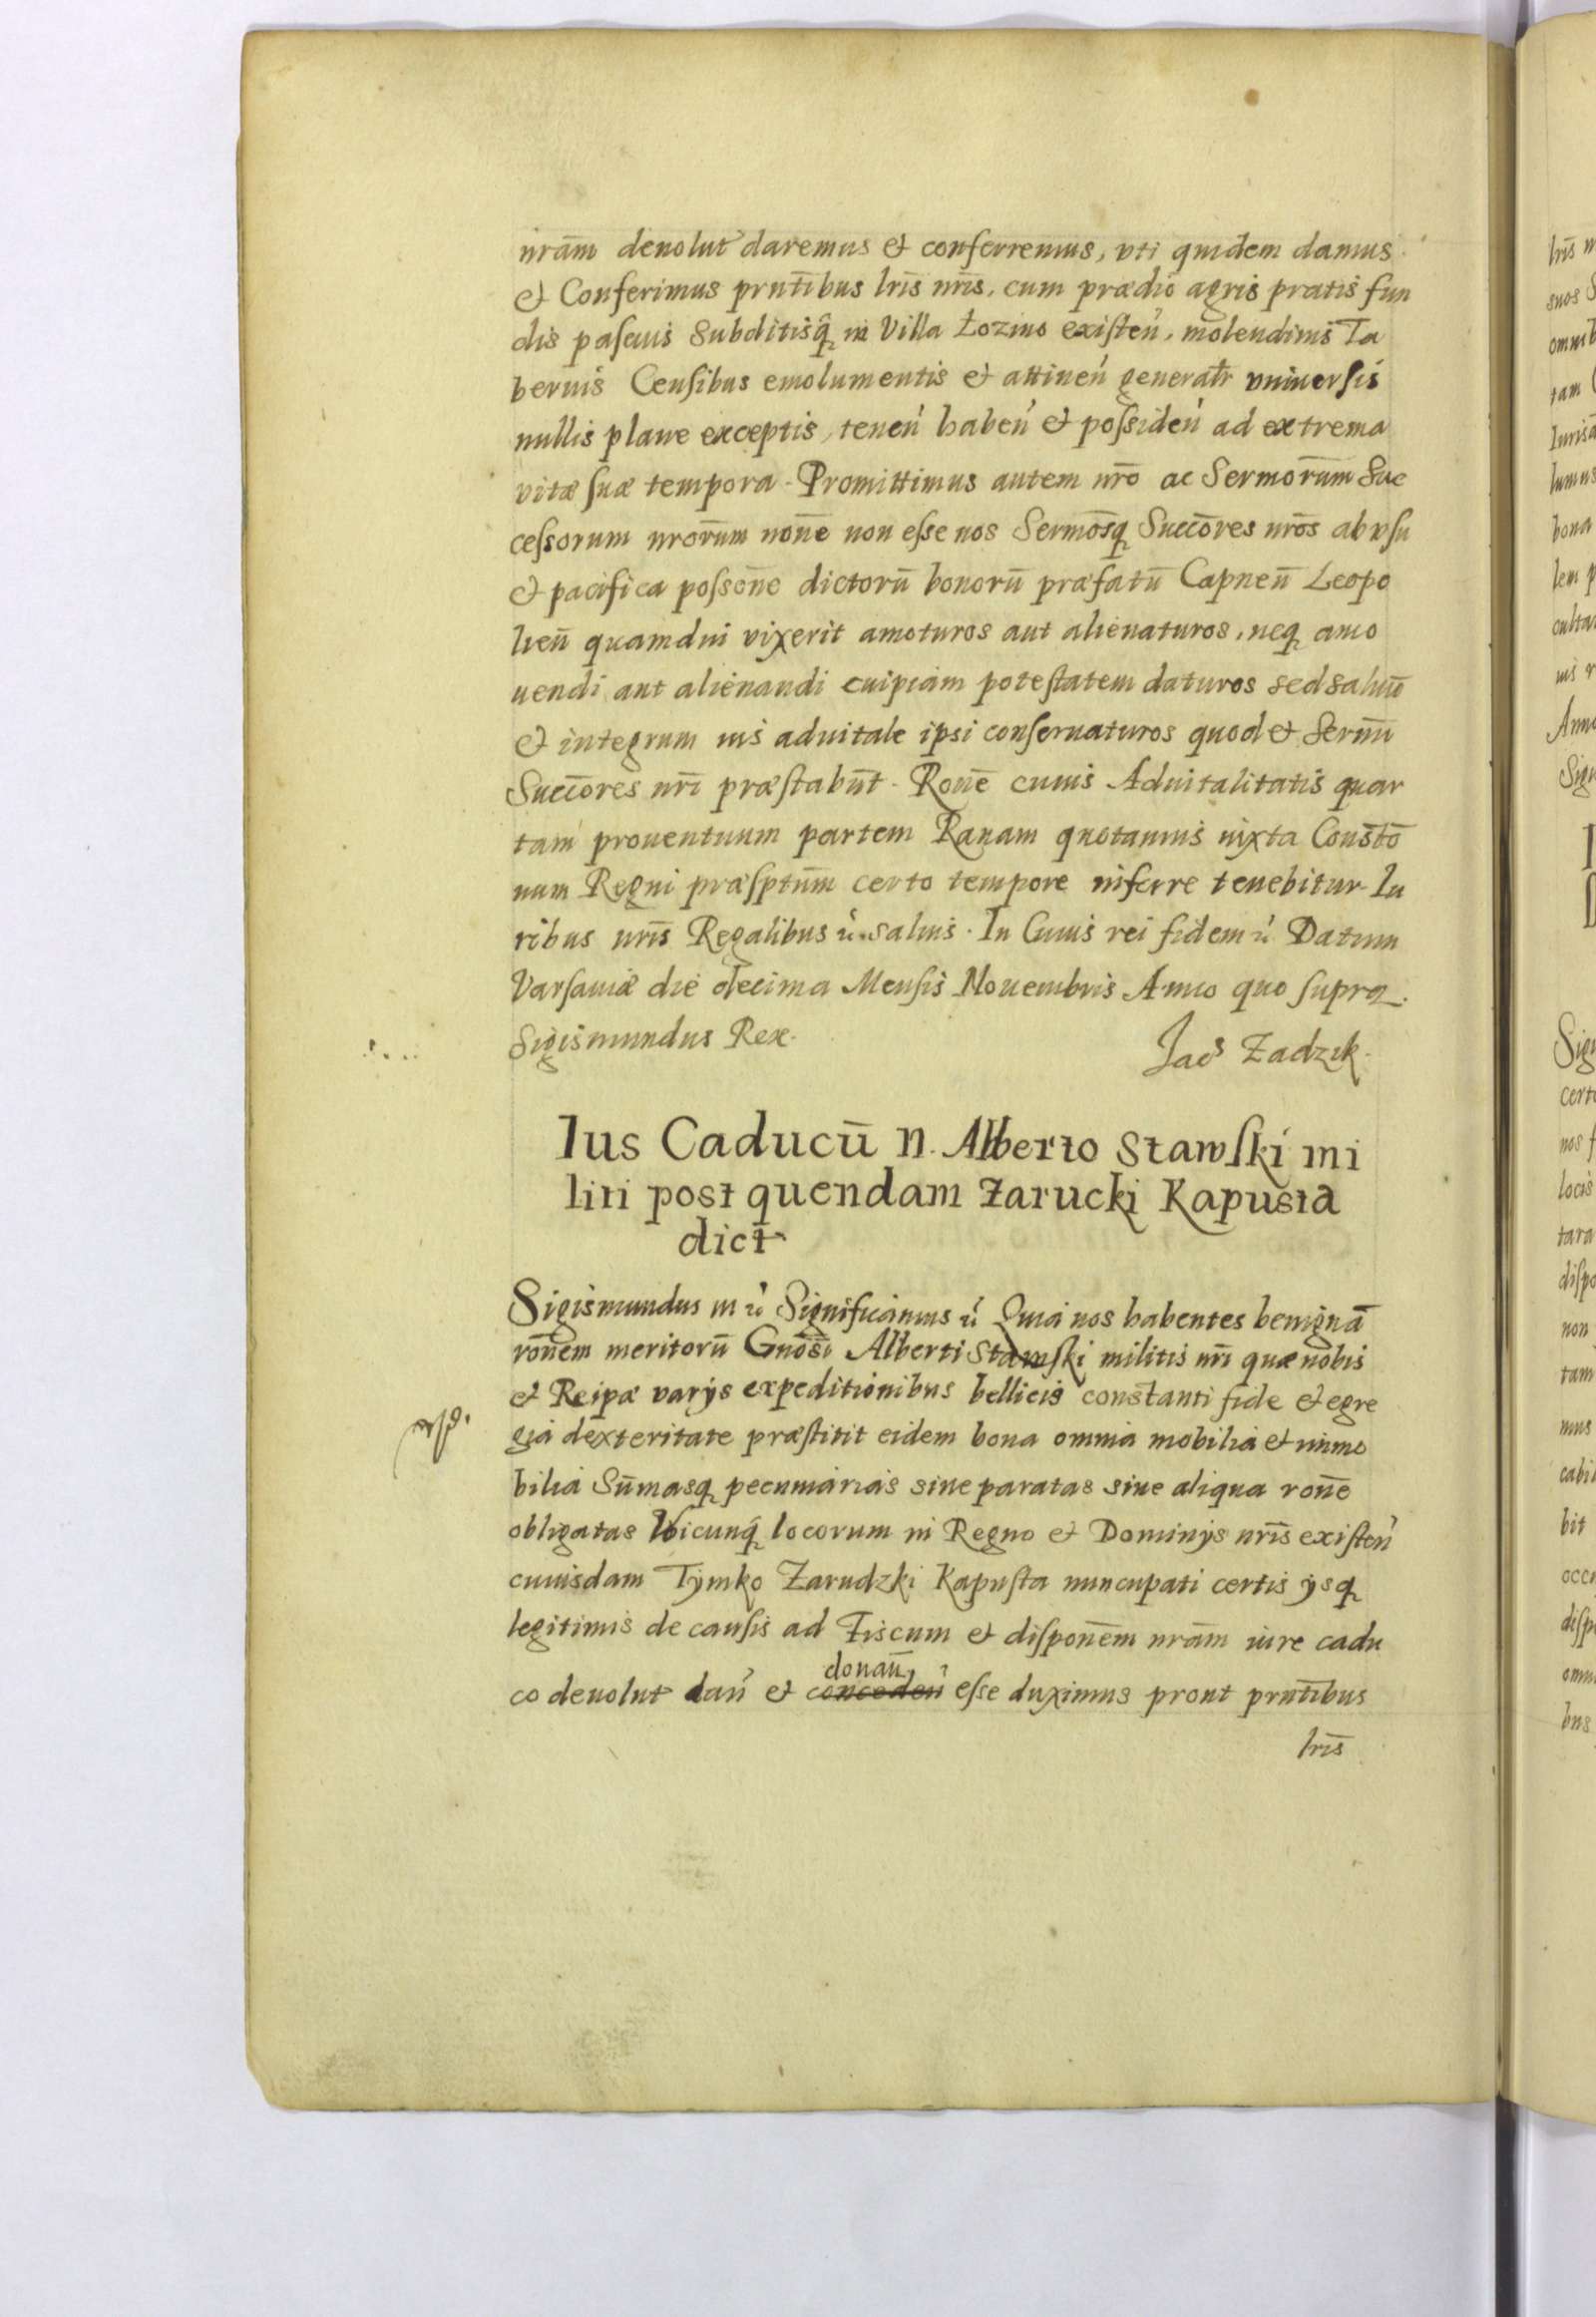 nrām deuolut daremus et conferremus, vti quidem damus
et Conferimus prntībus lrīs nrīs, cum prædio agris pratis fun
dis pascuis Subditisq in Villa Łozino existeń, molendinis Ta
bernis Censibus emolumentis et attineń generalr vniuersis
nullis plane exceptis, teneń habeń et possideń ad extrema
vitæ suæ tempora. Promittimus autem nrō ac Sermorūm Suc
cessorum nrorūm nonē non esse nos Sermosq̄ Succōres nrōs ab vsu
et pacifica possonē dictorū bonorū præfatū Capneū Leopo
lieū quamdiu vixerit amoturos aut alienaturos, neq amo
uendi aut alienandi cuipiam potestatem daturos sed saluū
et integrum ius aduitale ipsi conseruaturos quod et Sermī
Succōres nrī præstabūt. Ronē cuius Aduitalitatis quar
tam prouentuum partem Ranam quotannis iuxta Constō
num Regni præsptūm certo tempore inferre tenebitur. Iu
ribus nrīs Regalibus ń. saluis. In Cuius rei fidem ń Datum
Varsauiæ die decima Mensis Nouembris Anno quo supra.
Sigismundus Rex. Jacs Zadzik.
Ius Caducū N. Alberto Stawski mi
liti post quendam Zarucki Kapusta
dict
Sigismundus III ń Significamus ń Quia nos habentes benignā
ronēm meritorū Gnōsi Alberti Stawski militis nrī quæ nobis
et Reipæ varijs expeditionibus bellicis constanti fide et egre
gia dexteritate præstitit eidem bona omnia mobilia et immo
bilia Sūmasq pecuniarias siue paratas siue aliqua ronē
obligatas Vbicunq locorum in Regno et Dominijs nrīs existeń
cuiusdam Tymko Zarudzki Kapusta nuncupati certis ijsq
legitimis de causis ad Fiscum et disponēm nrām iure cadu
donań
co deuolut dań et concedeń esse duximus prout prntībus
lrīs